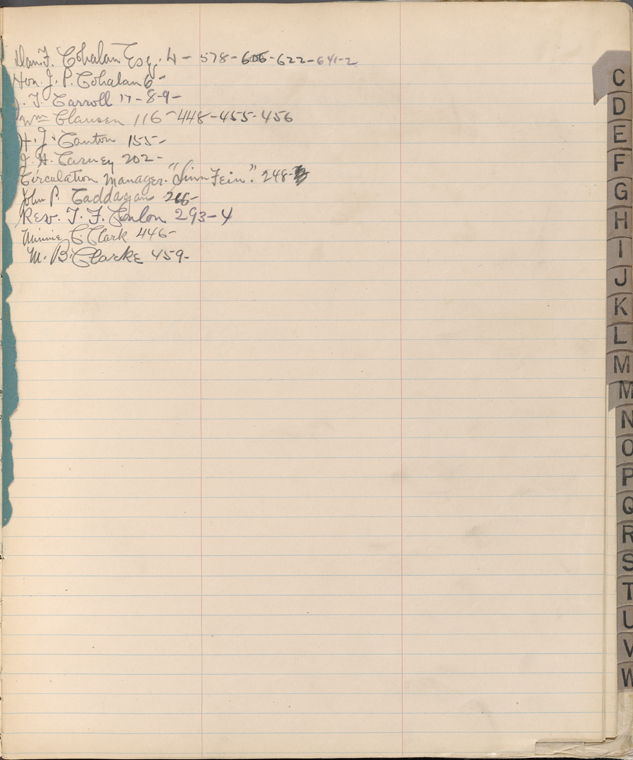 Dan. F. Cohalan Esq. 4 - 578-606-622-641-2
Hon. J. P. Cohalan 6-
J. T. Carroll 17-8-9-
Wm Clausen 116-448-455-456
H. J. Conton 155-
J. H. Carney 202-
Circulation Manager. "Sinn Fein." 248-
John P. Caddagan 266-
Rev. T. F. Conlon 293-4
Minnie C. Clark 446-
M. B. Clarke 459-
C
D
E
F
G
H
I
J
K
L
M
M
N
O
P
Q
R
S
T
U
V
W